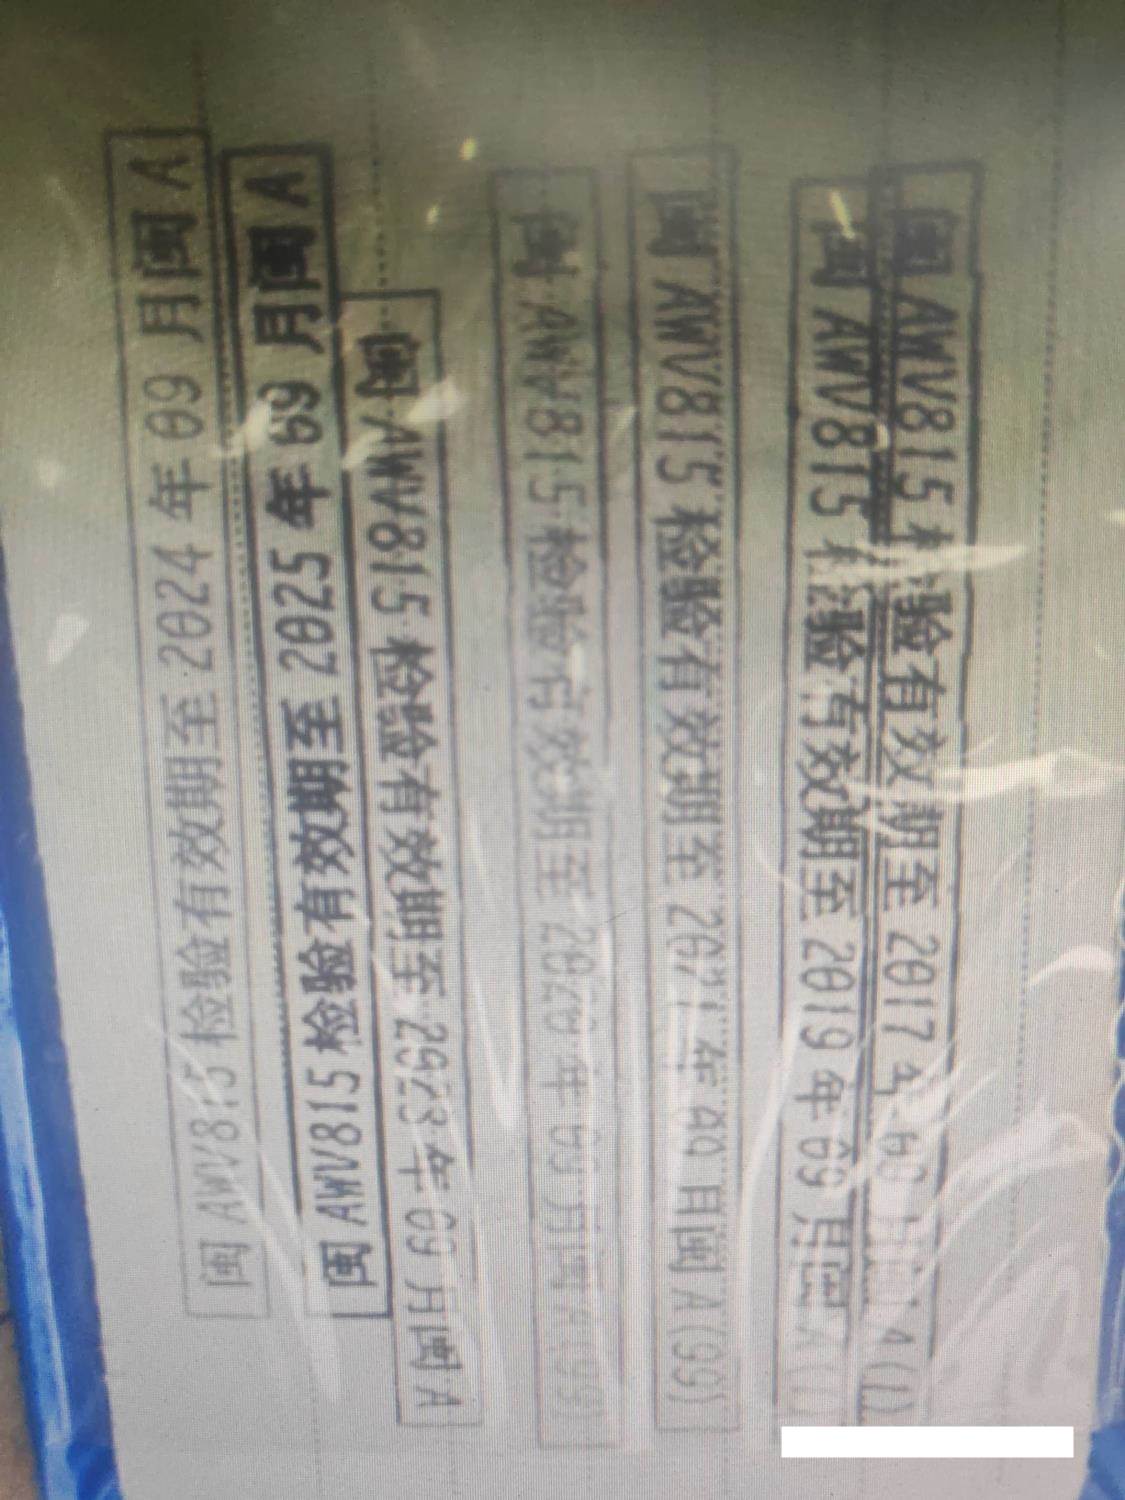 闽AWV815检验有效期至2017年09月闽A(1)
闽AWV815检验有效期至2019年09月闽A(1)
闽AWV815检验有效期至2021年09月闽A(99)
闽AWV815检验有效期至2020年09月闽A(99)
闽AWV815检验有效期至2023年09月闽A
闽AWV815检验有效期至2025年09月闽A
闽AWV815检验有效期至2024年09月闽A